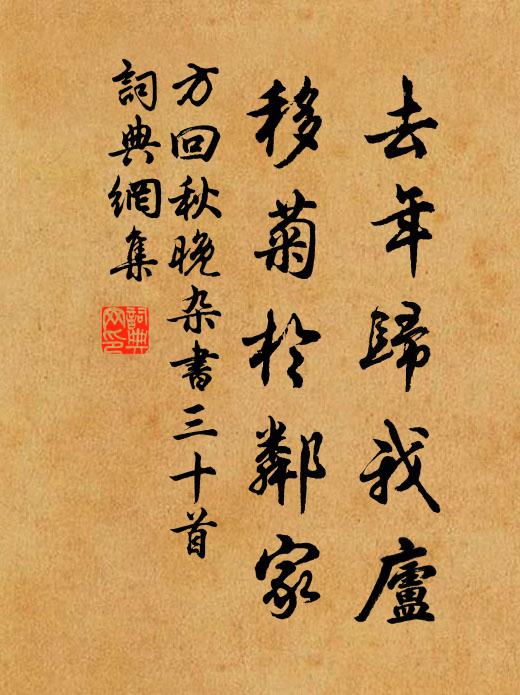 去年歸我廬
移菊於鄰家
方回秋晚杂書三十首
詞典網集
詞典网印